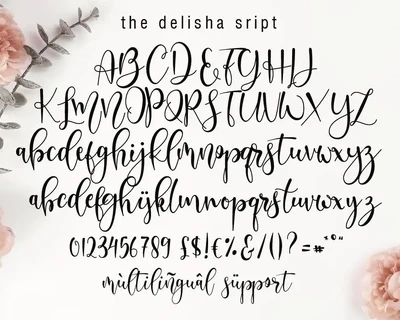 the delisha sript
ABCDEFGHIJ
KLMNOPQRSTUVWXYZ
abcdefghijklmnopqrstuvwxyz
abcdefghijklmnopqrstuvwxyz
0123456789 £$!€%&/()?=#*°“
mùltilingual süppört